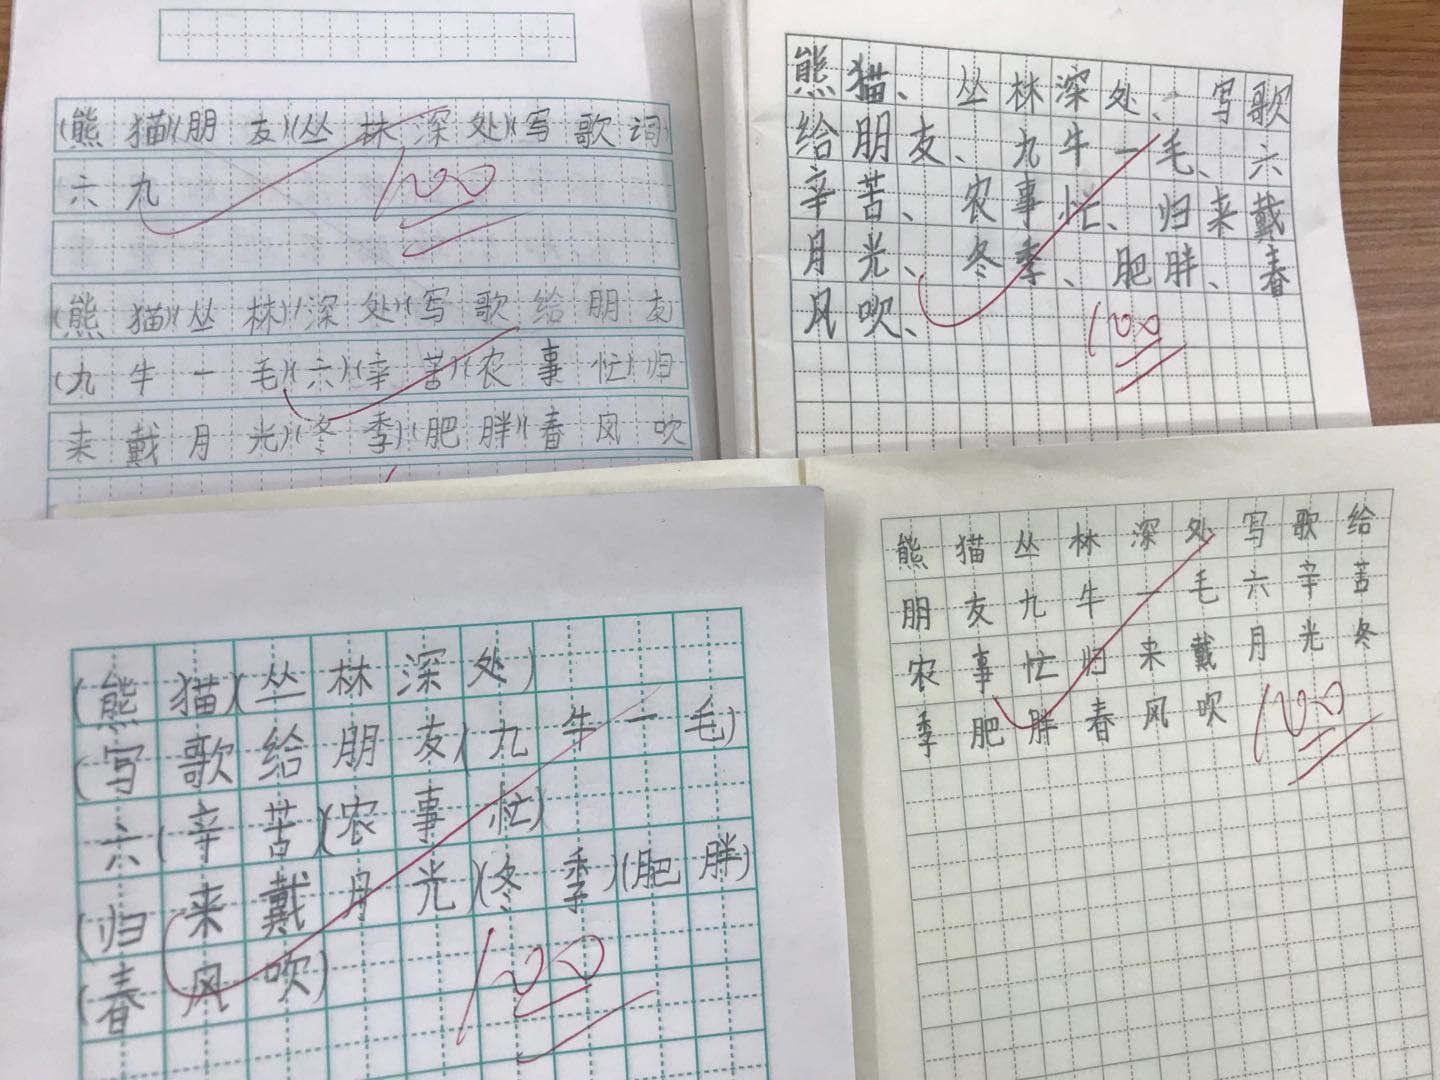 (熊猫)(朋友)(丛林深处)(写歌词)
六九
100
(熊猫)(丛林)(深处)(写歌给朋友
(九牛一毛)(六)(辛苦)(农事忙)归
来戴月光)(冬季)(肥胖)(春风吹
熊猫、丛林深处、写歌
给朋友、九牛一毛、六
辛苦、农事忙、归来戴
月光、冬季、肥胖、春
风吹、
100
(熊猫)(丛林深处)
(写歌给朋友(九牛一毛)
六(辛苦)(农事忙)
(归来戴月光)(冬季)(肥胖)
(春风吹)
100
熊猫丛林深处写歌给
朋友九牛一毛六辛苦
农事忙归来戴月光冬
季肥胖春风吹
100